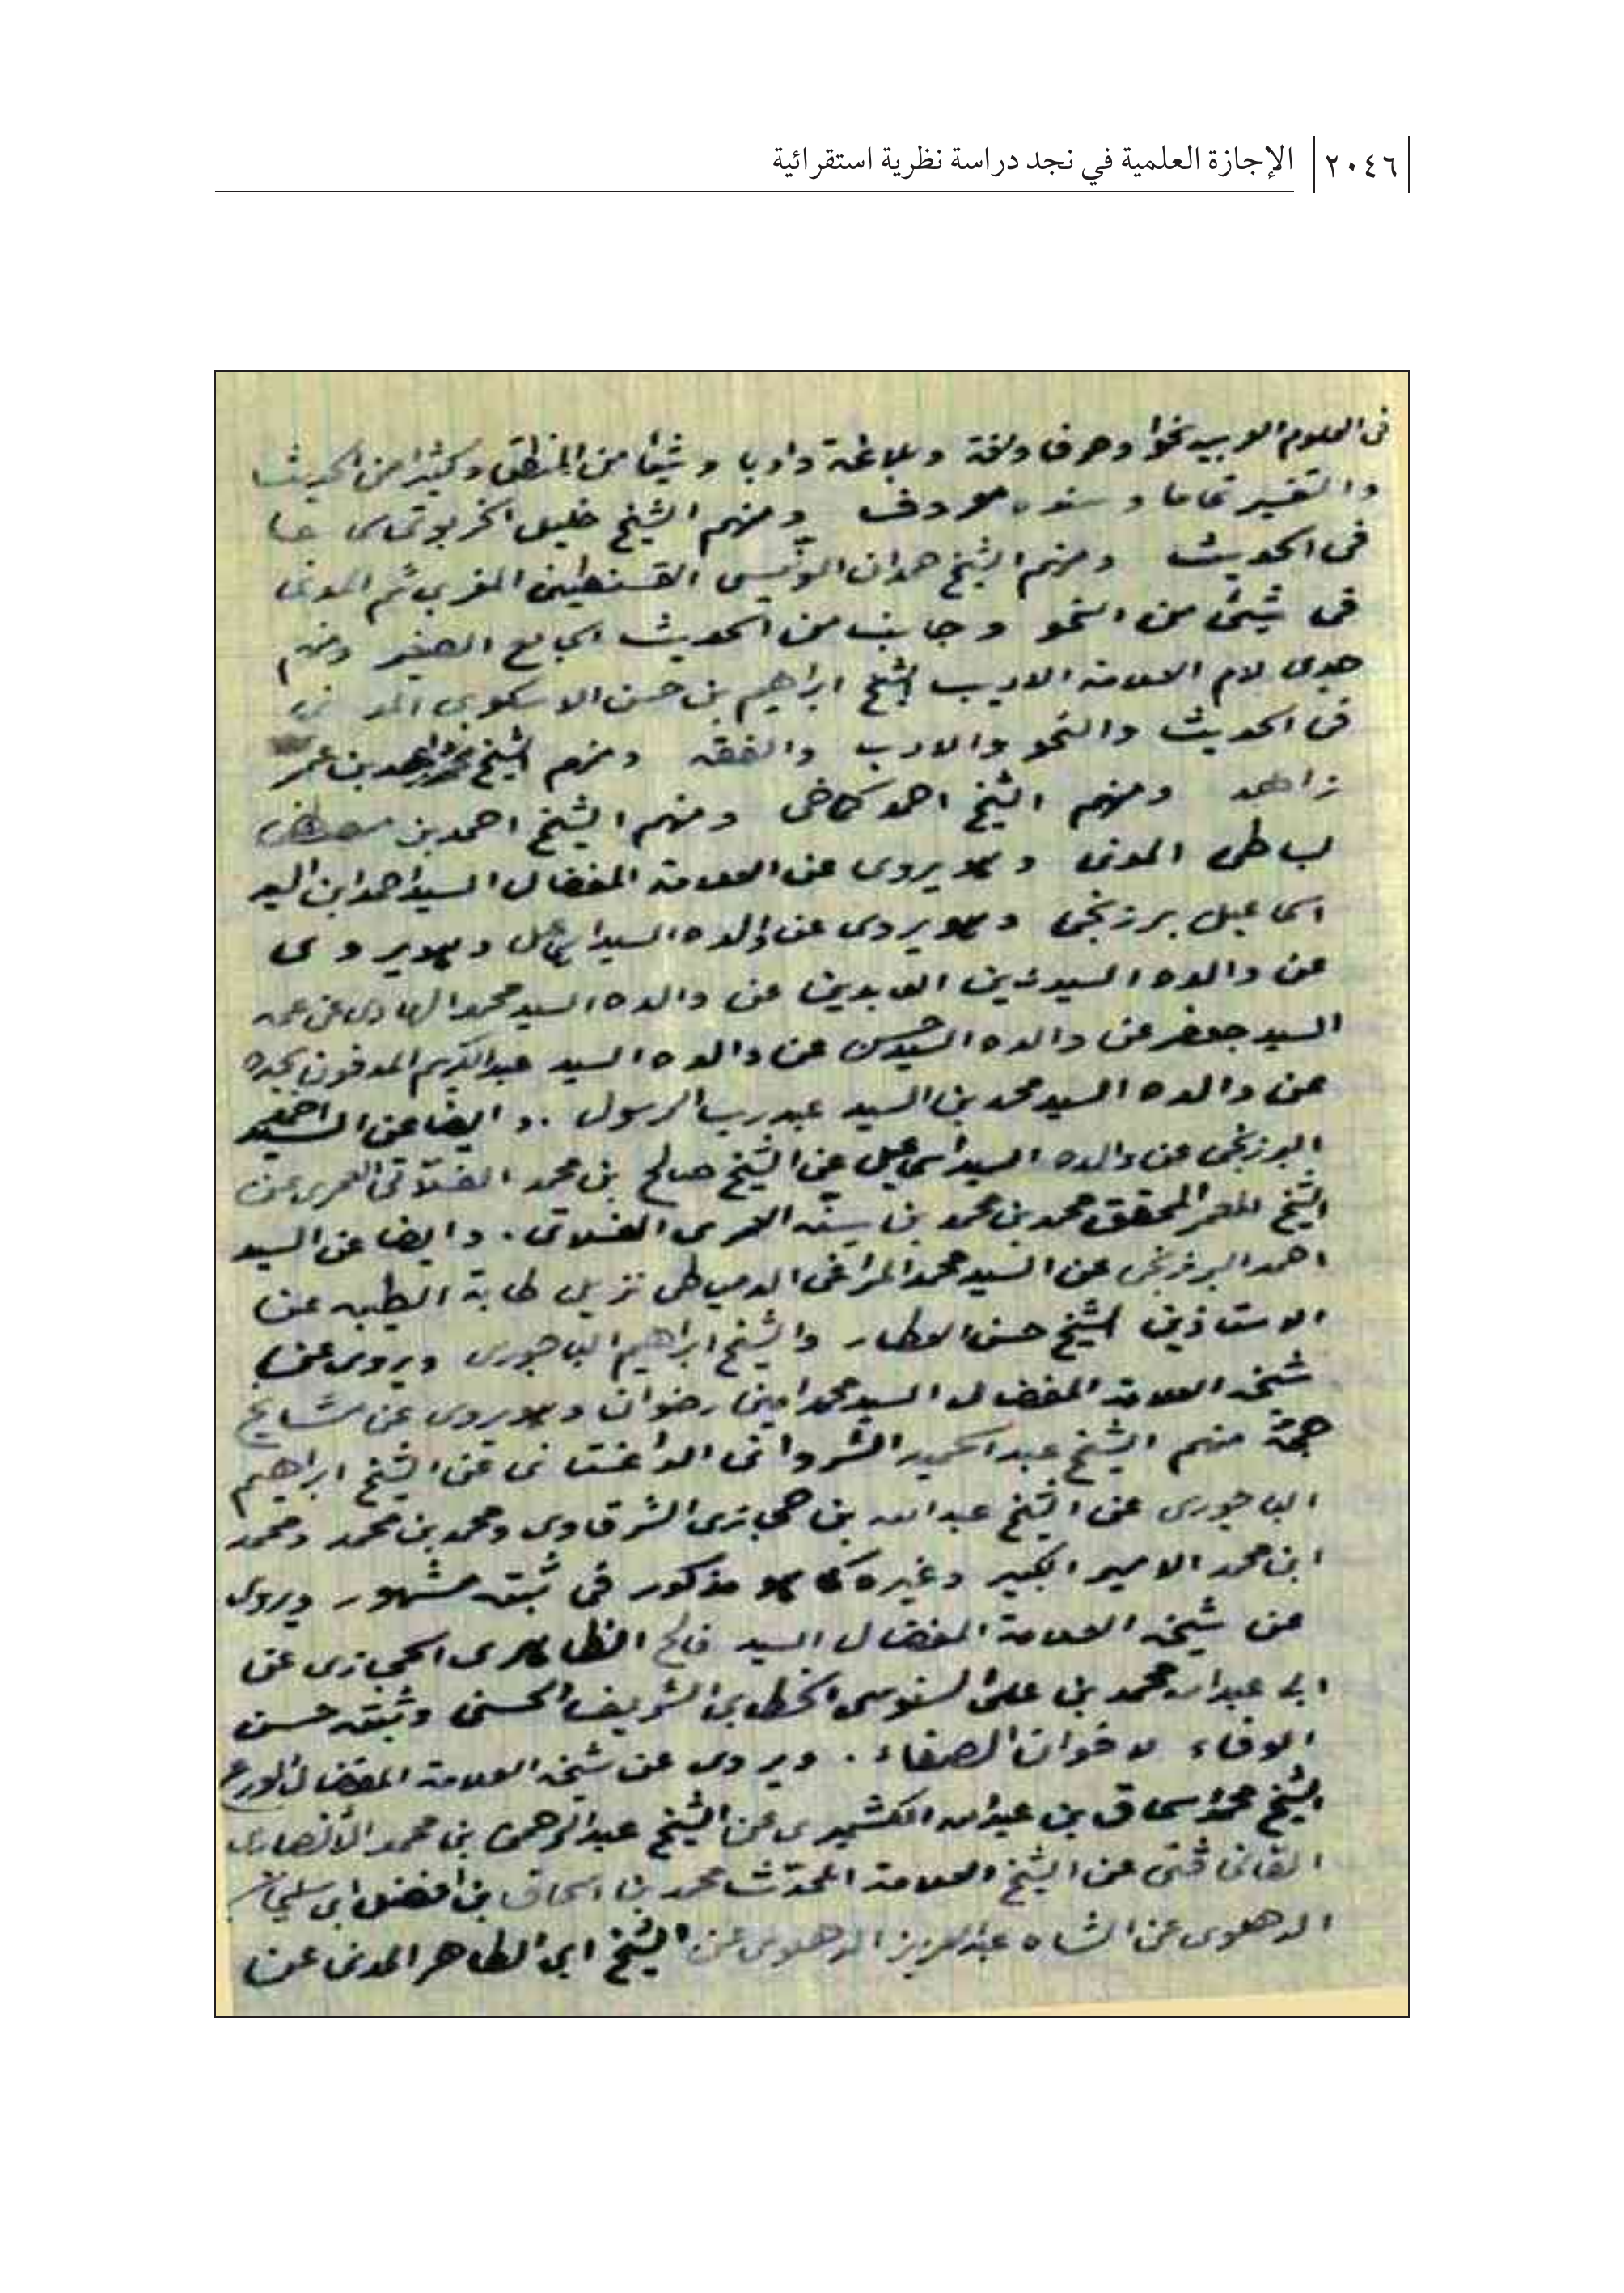 ٢٠٤٦ الإجازة العلمية في نجد دراسة نظرية استقرائية
فى العلوم العربيه نحوا وصرفا ولغة وبلاغة وادبا وشيئا من المنطق وكثيرا من الحديث
والتفسير تماما وسنده معروف ومنهم الشيخ خليل الخربوتى
فى الحديث ومنهم الشيخ حمدان الونيسى القسنطينى المغربي ثم المدنى
فى شيئ من النحو وجانب من الحديث الجامع الصغير ومنهم
جدى لام العلامة الاديب الشيخ ابراهيم بن حسن الاسكوبى المدنى
فى الحديث والنحو والادب والفقه ومنهم الشيخ بن عمر
زاهد ومنهم الشيخ احمد كماخى ومنهم الشيخ احمد بن مصطفى
بساطى المدنى وهو يروى عن العلامة المفضال السيد احمد ابن السيد
اسماعيل برزنجى وهو يروى عن والده السيد اسماعيل وهو يروى
عن والده السيد زين العابدين عن والده السيد محمد الهادى عن عمه
السيد جعفر عن والده السيد حسن عن والده السيد عبدالكريم المدفون بجده
عن والده السيد محمد بن السيد عبد رب الرسول . وايضا عن السيد احمد
البرزنجى عن والده السيد اسماعيل عن الشيخ صالح بن محمد الفلاتى العمرى عن
الشيخ المعمر المحقق محمد بن محمد بن سنه العمرى الفلاتى . وايضا عن السيد
احمد البرزنجى عن السيد محمد المراغى الدمياطى نزيل طابة الطيبه عن
الاستاذين الشيخ حسن العطار والشيخ ابراهيم الباجورى ويروى عن
شيخه العلامة المفضال السيد محمد امين رضوان وهو يروى عن مشايخ
جمة منهم الشيخ عبد الحميد الشروانى الداغستانى عن الشيخ ابراهيم
الباجورى عن الشيخ عبدالله بن حجازى الشرقاوى ومحمد بن محمد ومحمد
ابن محمد الامير الكبير وغيره كما هو مذكور فى ثبته مشهور ويروى
عن شيخه العلامة المفضال السيد فالح الظاهرى الحجازى عن
ابى عبدالله محمد بن على السنوسى الخطابى الشريف الحسنى وثبته حسن
الوفاء لاخوان الصفاء . ويروى عن شيخه العلامة المفضال الورع
الشيخ محمد اسحاق بن عبدالله الكشميرى عن الشيخ عبدالرحمن بن محمد الأنصارى
الفانى فتى عن الشيخ العلامة المحدث محمد بن اسحاق بن افضل ابى سليمان
الدهلوى عن الشاه عبدالعزيز الدهلوى عن الشيخ ابى الطاهر المدنى عن